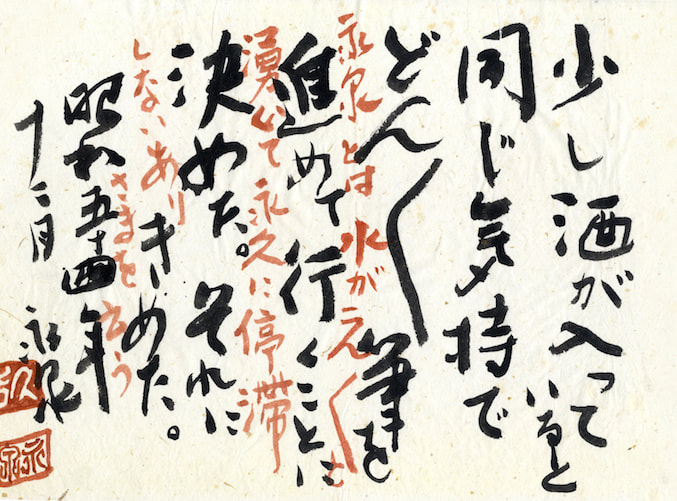 少し酒が入って
いると
同じ気持で
どん〱筆を
永泉とは水がえ〱と
進めて行くことに
湧いて永久に停滞
決めた。それに
きめた。
しないあり
さまを云う
昭和五十四年
十二月 永泉